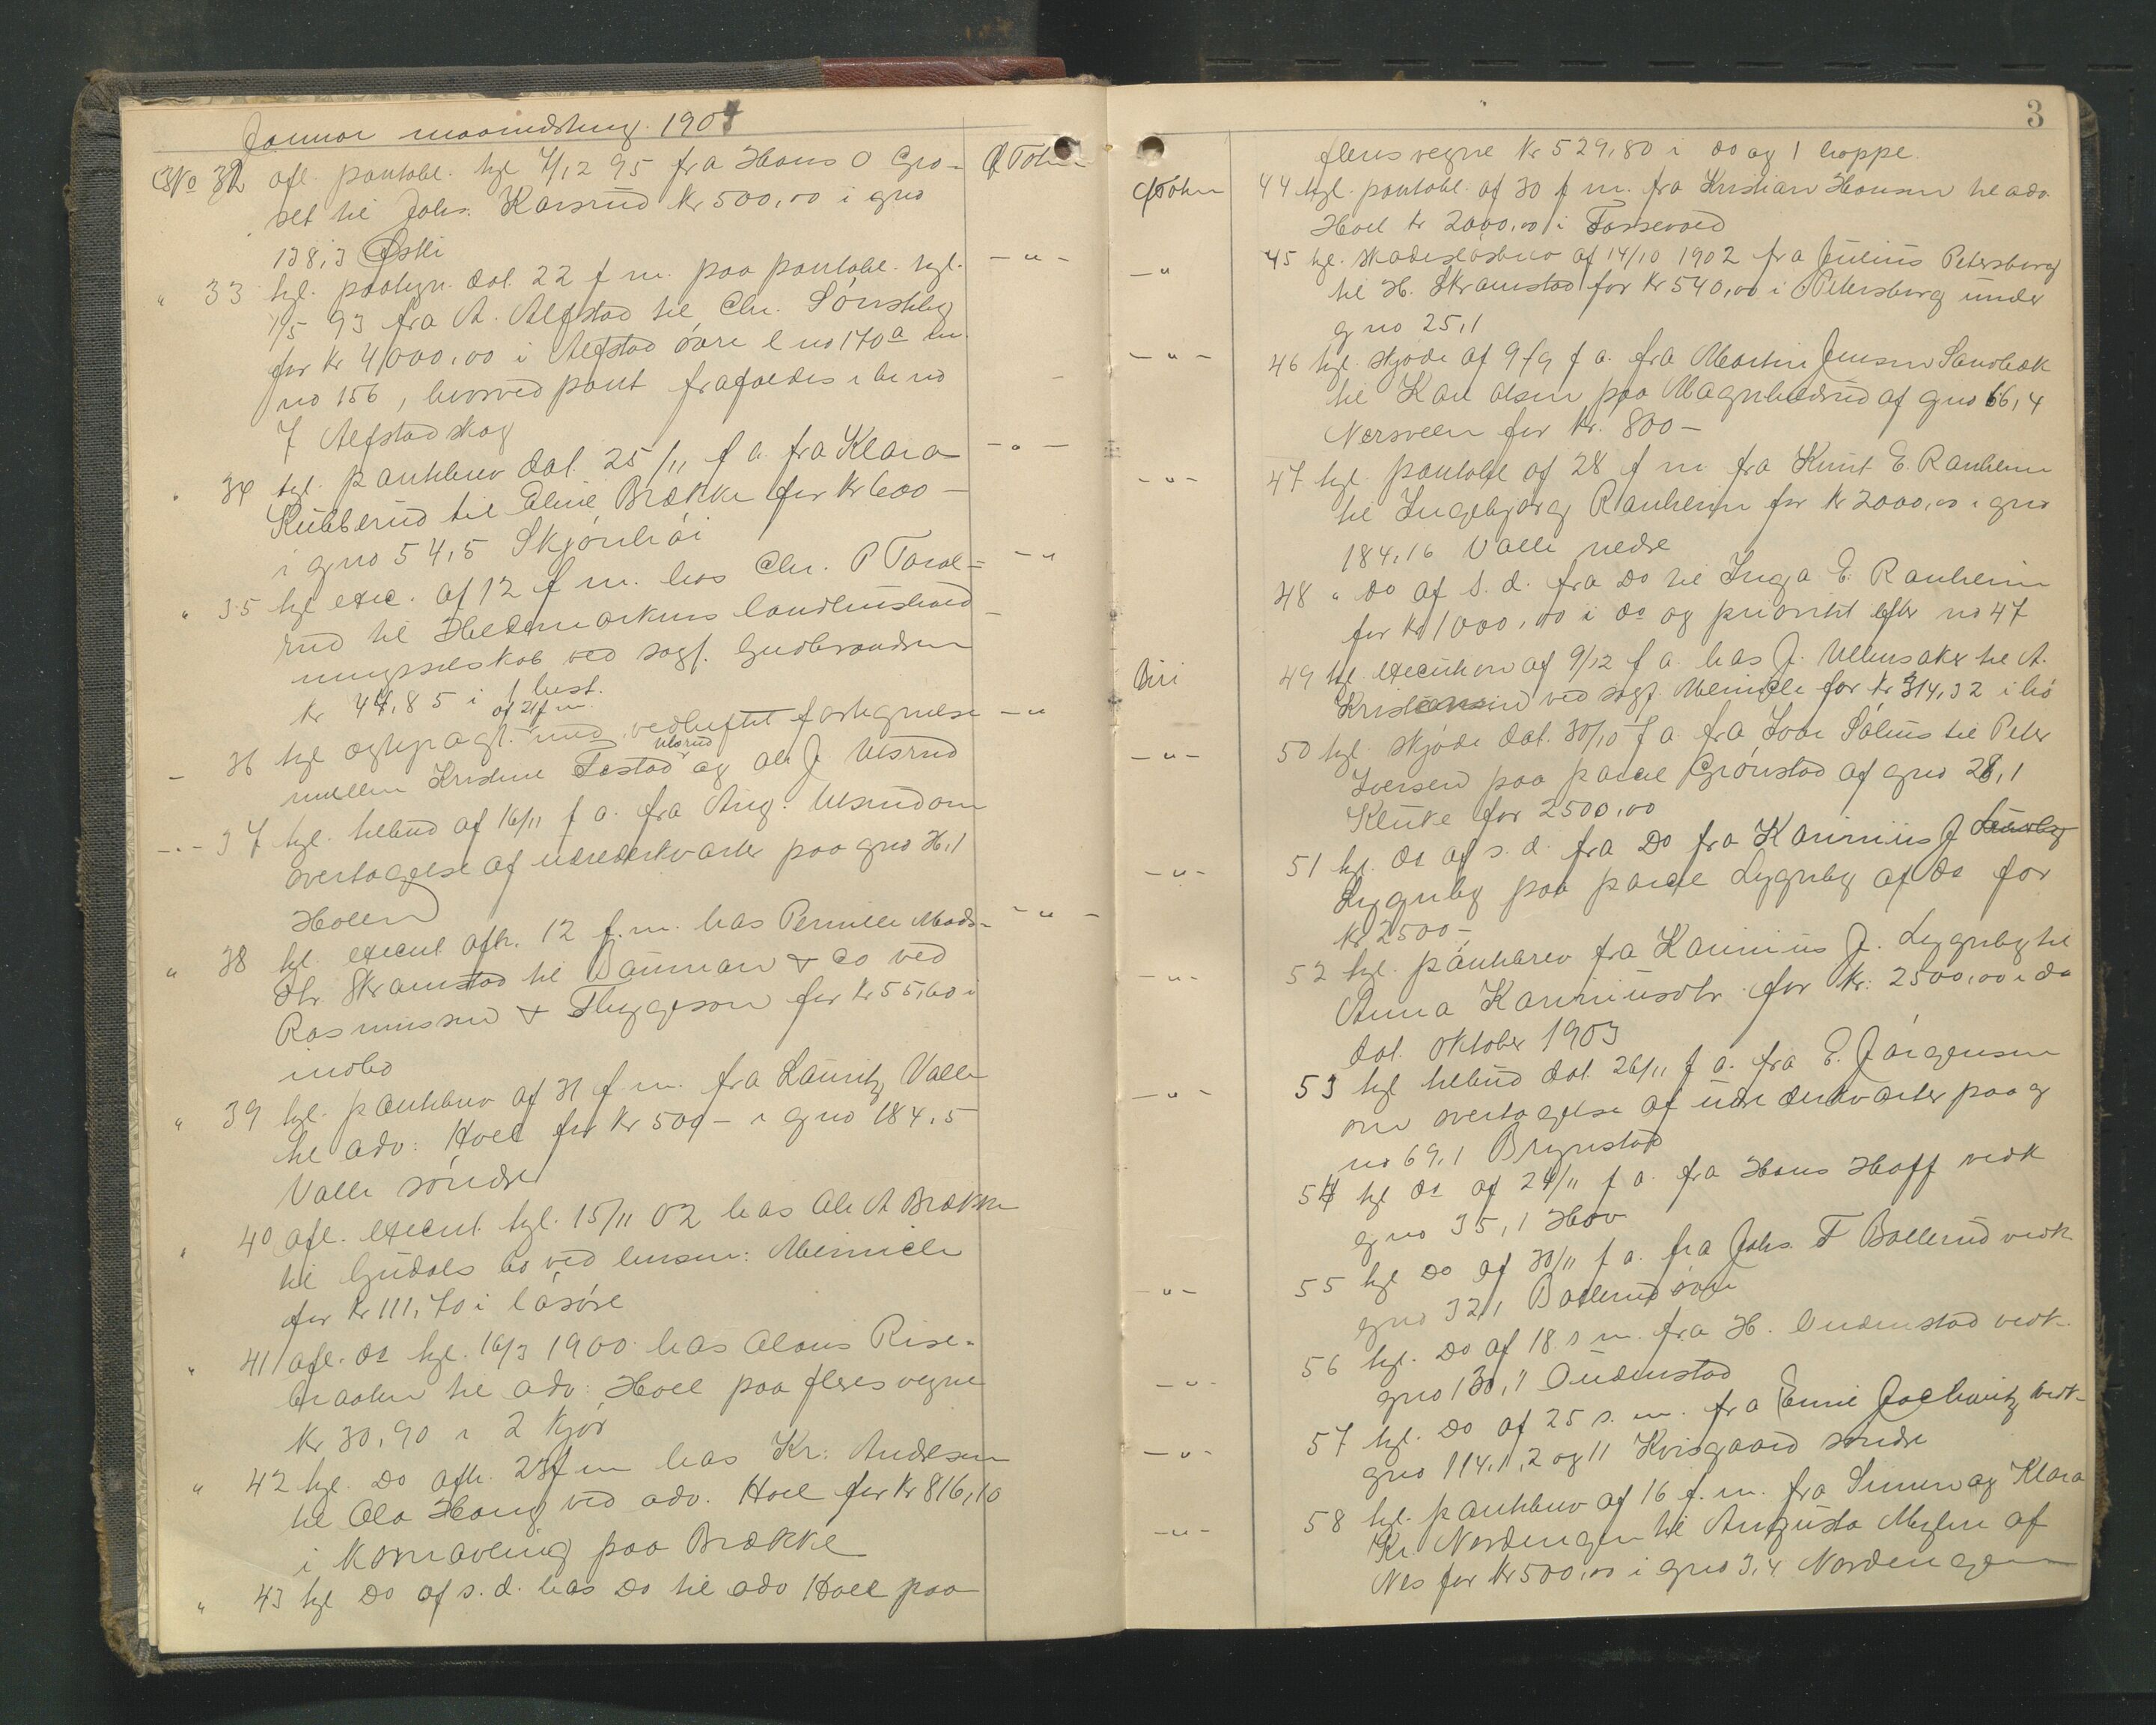 Januar maanedsting. 1904
No 32 afl. pantobl. tgl. 7/12 95 fra Hans O Gro- Ø Toten
set til Johs. Karsrud kr 500,00 i gno
138,3 Øski
" 33 tgl. paategn. dat. 22 f m. paa pantobl. tgl. - " -
1/5 93 fra A. Alfstad til Chr. Sønsteby
for kr 4000,00 i Alfstad øvre l no 170a m.
no 156, hvorved pant frafaldes i br no
7 Alfstad skog
" 34 tgl. pantebrev dat. 25/11 f a. fra Klara - " -
Kubberud til Eline Brække for kr 600-
i gno 54,5 Skjønhói
" 35 tgl exec. af 12 f m. hos Chr. P Taral= - "
rud til Hedemarkens landhushold-
ningsselskab ved sagf. Gudbrandsen
kr 44,85 i 1 hest.
af 21 f m.
- 36 tgl. med vedheftet fastegnelse - "
Ulsrud
mellem Kristine Tostad og Ole J Ulsrud
- " - 37 tgl. tilbud af 16/11 f a. fra Aug. Ulsrud om
overtagelse af udrederkvarter paa gno 36,1
Holen
" 38 tgl. execut afh. 12 f. m. hos Pernille Mads- - " -
dtr Skramstad til Bauman & Co ved
Rasmussen & Thygeson for kr 55,60 i
indbo
" 39 tgl. pantebrev af 31 f m. fra Lauritz Valle
til adv: Hoel for kr 500- i gno 184,5
Valle søndre
" 40 afl. execut. tgl. 15/11 02 hos Ole A Brække
til Gudals bo ved lensm: Meinich
for kr 111,70 i løsøre
" 41 afl. do tgl. 16/3 1900 hos Olaus Rise-
braaten til adv: Hoel paa fleres vegne
kr 30,90 i 2 kjør
" 42 tgl. Do afh. 23 f m hos Kr: Andersen
til Ola Haug ved adv. Hoel for kr 816,10
i kornavling paa Brække
" 43 tgl Do af s. d. hos Do til adv Hoel paa
3
fleres vegne kr 529,80 i do og 1 hoppe.
Ø Toten 44 tgl. pantobl. af 30 f m. fra Kristian Hansen til adv.
Hoel kr 2000,00 i Fossevold
- " 45 tgl. skadesløsbrev af 14/10 1902 fra Julius Petersborg
til H. Skramstad for kr 540,00 i Petersborg under
g no 25,1
- " - 46 tgl. skjøde af 9/9 f a. fra Martin Jensen Sandbæk
til Karl Olsen paa Magnhildsrud af gno 66,4
Nersveen for kr. 800-
- " - 47 tgl. pantobl af 28 f m fra Knut E. Ranheim
til Ingebjørg Ranheim for kr 2000,00 i gno
184,16 Valle nedre
48 " do af s. d. fra Do til Inga E. Ranheim
for kr 1000,00 i do og prioritet efter no 47
Biri 49 tgl. execution af 9/12 f a. hos J. Ullensaker til A.
Kristiansen ved sagf. Meinich for kr 314,32 i hø
- " - 50 tgl. skjøde dat. 30/10 f a. fra Iver Solus til Peter
Iversen paa parcel Grønstad af gno 28,1
Kluke for 2500,00
- " - 51 tgl. do af s. d. fra Do fra Karinius J
Lygnby paa parcel Lygnby af do for
kr 2500-
- " - 52 tgl. pantebrev fra Karinius J. Lygnby til
Anna Kariniusdtr for kr. 2500,00 i do
dat. oktober 1903
- " - 53 tgl tilbud dat. 26/11 f a. fra E. Jørgensen
om overtagelse af udrederkvarter paa g
no 69,1 Brynstad
54 tgl do af 24/11 f a. fra Hans Hoff vedk
gno 35,1 Hov
- " - 55 tgl Do af 30/11 f a. fra Johs. T Bollerud vedk
gno 32,1 Bollerud øvre
56 tgl. Do af 18. s m. fra H. Oudenstad vedk.
- " - gno 130,1 Oudenstad
57 tgl. Do af 25 s. m. fra Emil Jochwitz vedk-
- " - gno 114,1,2 og 11 Kvisgaard søndre
58 tgl. pantebrev af 16 f. m. fra Simen og Klara
- " - Kr. Nordengen til Augusta Myhre af
Nes for kr 500,00 i gno 3,4 Nordengen